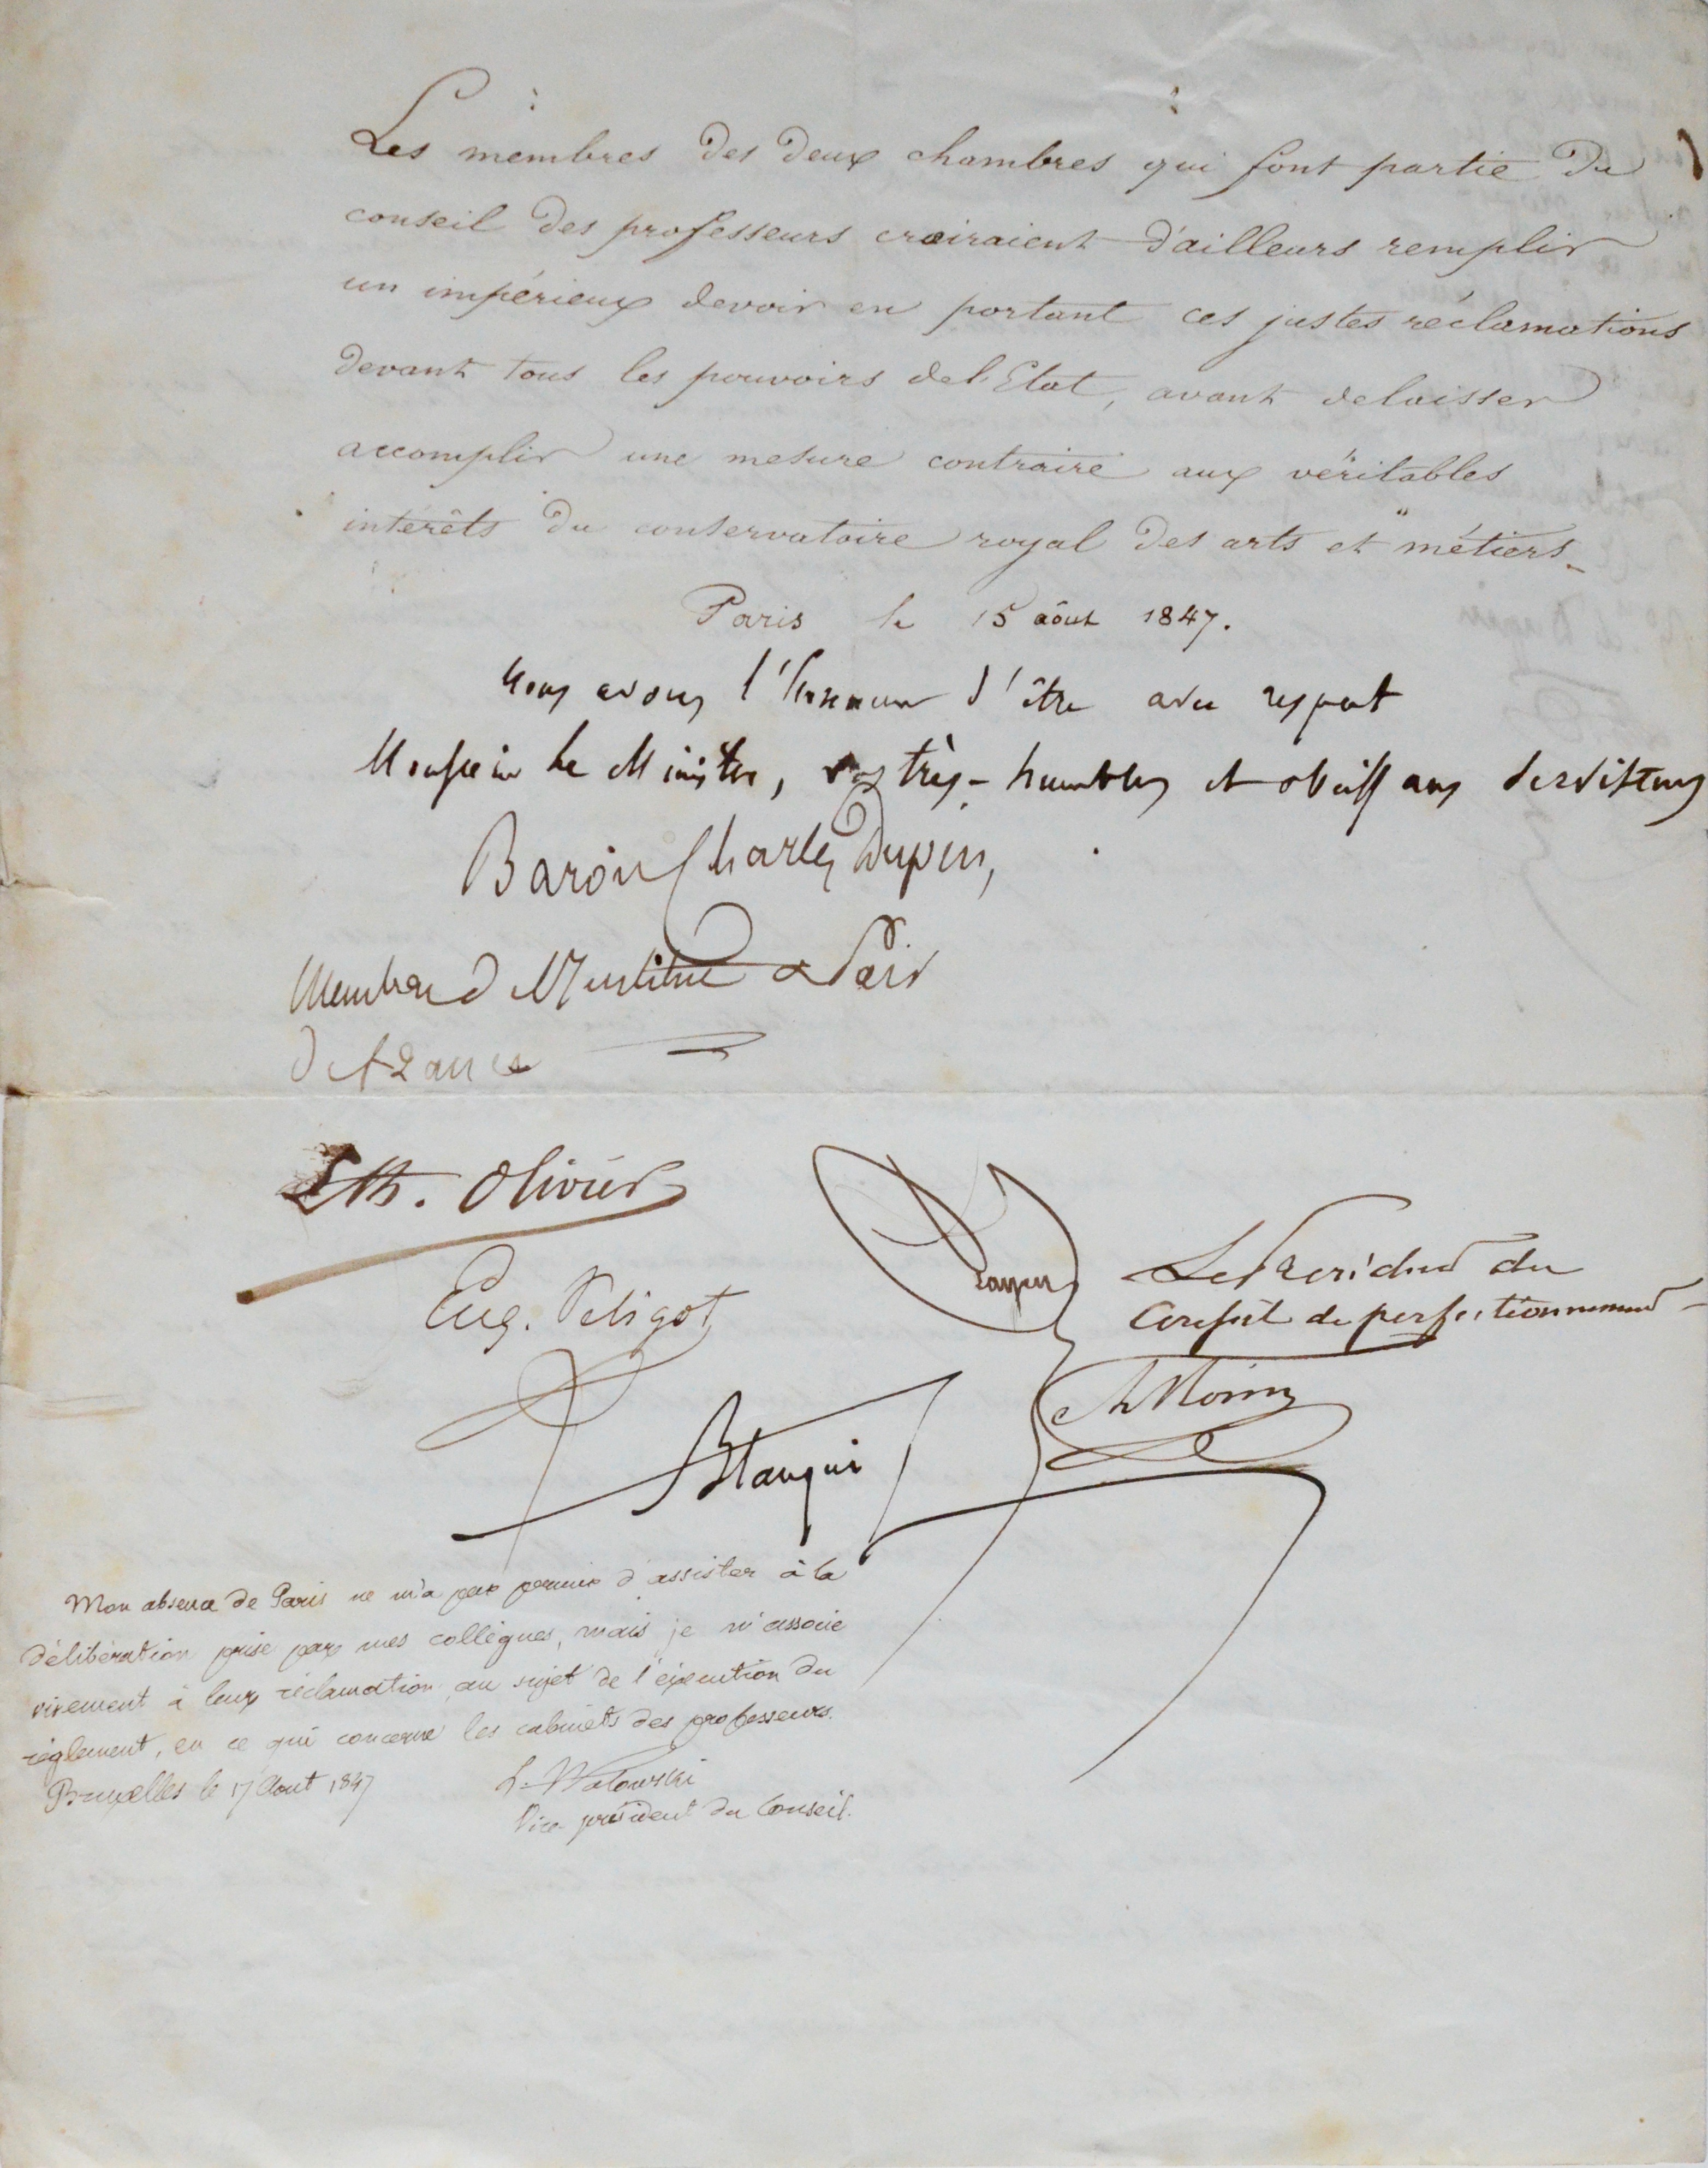 Les membres des deux chambres qui font partie du
conseil des professeurs croiraient d'ailleurs remplir
un impérieux devoir en portant ces justes réclamations
devant tous les pouvoirs de l'Etat, avant de laisser
accomplir une mesure contraire aux véritables
intérêts du conservatoire royal des arts et métiers.
Paris le 15 août 1847.
Nous avons l'honneur d'être avec respect
Monsieur le Ministre, vos très-humbles et obéissans serviteurs
Baron Charles Dupin,
Membre de l'Institut & Pair
de France
Th. Olivier
Payen
Le Président du
Conseil de perfectionnement
Eug. Peligot
A Morin
Blanqui
Mon absence de Paris ne m'a pas permis d'assister à la
délibération prise par mes collègues, mais je m'associe
vivement à leur réclamation au sujet de l'exécution du
règlement, en ce qui concerne les cabinets des professeurs.
Bruxelles le 17 Aout 1847
L. Wolowski
Vice président du Conseil.